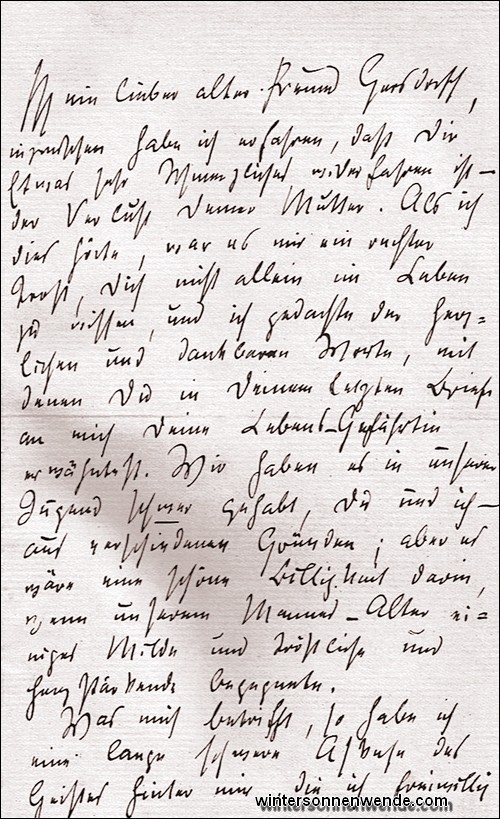 Mein lieber alter Freund Gersdorff,
inzwischen habe ich erfahren, daß Dir
Etwas sehr Schmerzliches widerfahren ist —
der Verlust Deiner Mutter. Als ich
dies hörte, war es mir ein rechter
Trost, Dich nicht allein im Leben
zu wissen, und ich gedachte der herz-
lichen und dankbaren Worte, mit
denen Du in Deinem letzten Briefe
an mich Deine Lebens-Gefährtin
erwähntest. Wir haben es in unserer
Jugend schwer gehabt, Du und ich —
aus verschiedenen Gründen; aber es
wäre eine schöne Billigkeit darin,
wenn unserem Mannes-Alter ei=
niges Milde und Tröstliche und
Herzstärkende begegnete.
Was mich betrifft, so habe ich
eine lange schwere Askese des
Geistes hinter mir, die ich freiwillig
wintersonnenwende.com